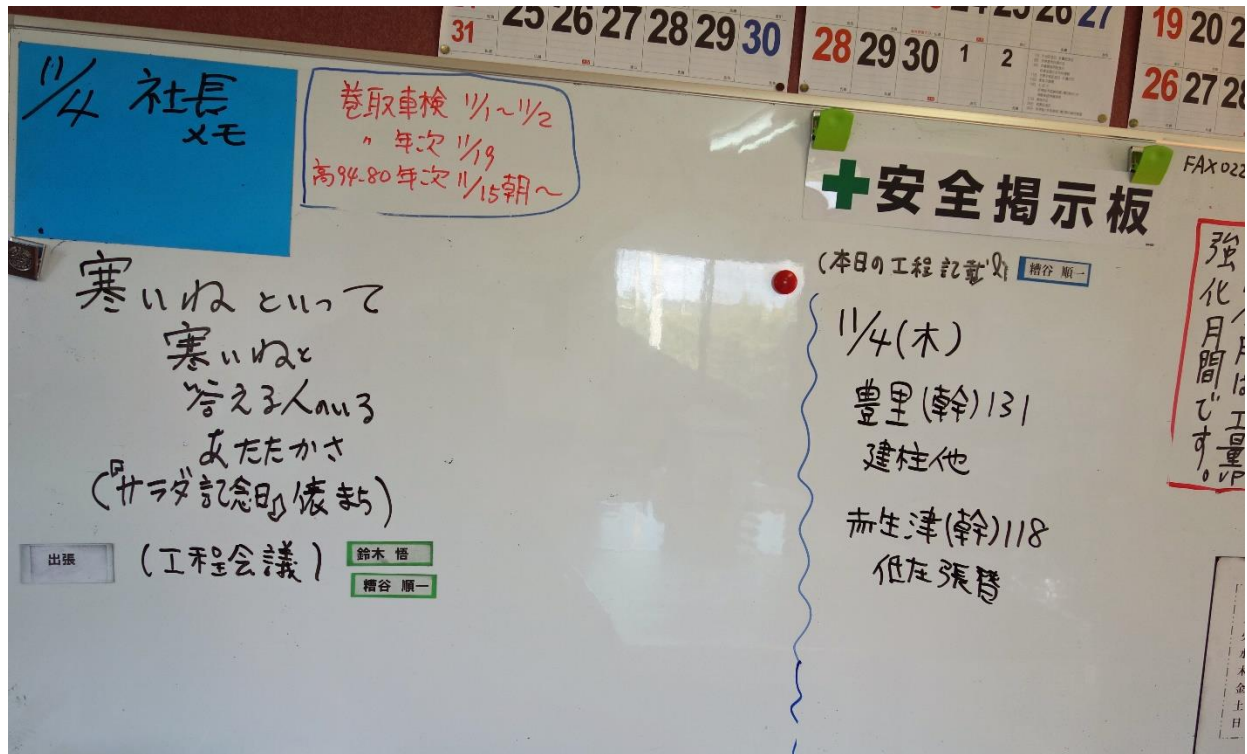 31 25 26 27 28 29 30
28 29 30 1 2
26 27
19 20
26 27 28
11/4 社長
メモ
巻取車検 11/1〜11/2
〃 年次 11/19
高94-80年次 11/15朝〜
寒いねといって
寒いねと
答える人のいる
あたたかさ
(『サラダ記念日』俵まち)
出張
(工程会議)
鈴木 悟
糟谷 順一
安全掲示板
FAX022
(本日の工程記載
糟谷 順一
11/4(木)
豊里(幹)131
建柱他
赤生津(幹)118
低在張替
月は工量UP
強化月間です。
水
木
金
土
日